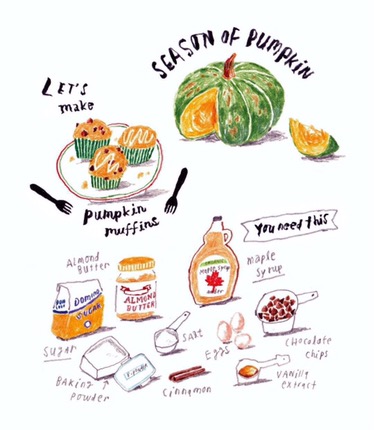 SEASON OF PUMPKIN
LET'S
make
pumpkin
muffins
You need this
Almond
Butter
ALMOND
BUTTER
maple syrup
maple
syrup
DOMINO
SUGAR
Sugar
Salt
Eggs
chocolate
chips
Baking
powder
Cinnamon
vanilla
extract